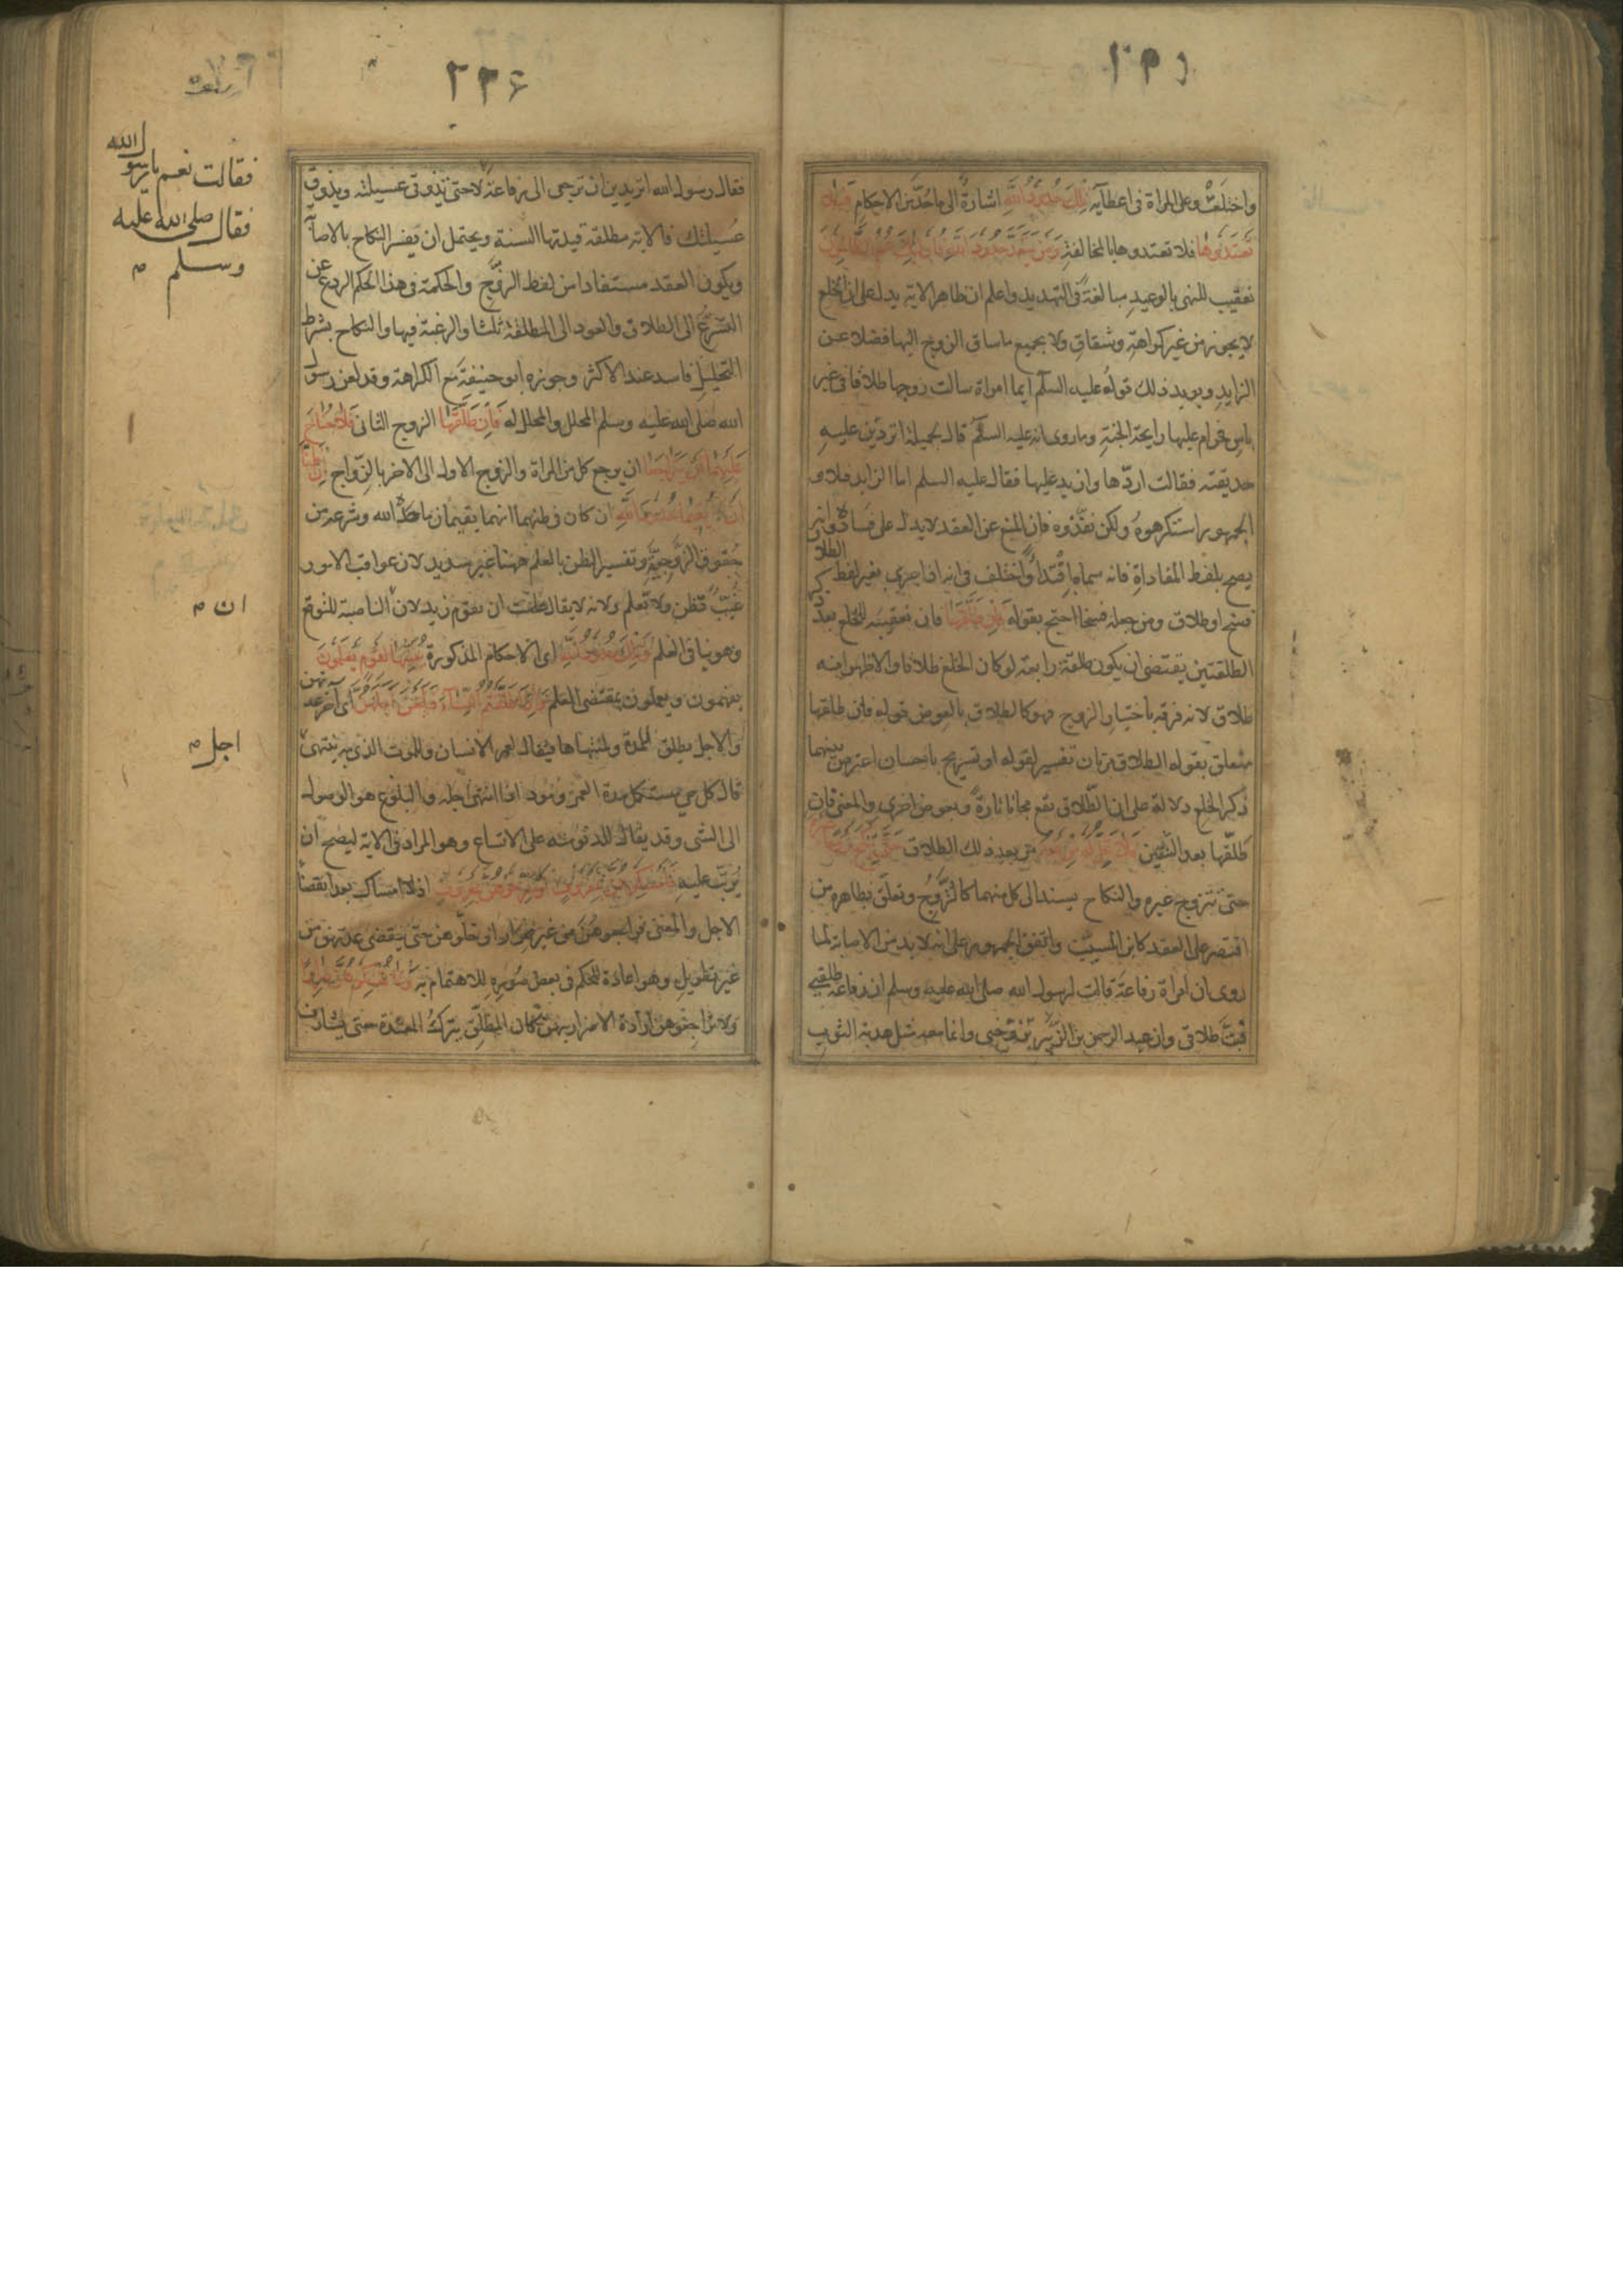 واختلعت وعلى المراة فى اعطائه تلك حدود الله اشارة الى ما حد من الاحكام فلا
تعتدوها فلا تعتدوها بالمخالفة ومن يتعد حدود الله فاولئك هم الظالمون
تعقيب للنهى بالوعيد مبالغة فى التهديد واعلم ان ظاهر الاية يدل على ان الخلع
لا يجوز من غير كراهة وشقاق ولا بجميع ما ساق الزوج اليها فضلا عن
الزايد ويويد ذلك قوله عليه السلم ايما امراة سالت زوجها طلاقا فى غير
باس فحرام عليها رايحة الجنة وما روى انه عليه السلم قال لجميلة اتردين عليه
حديقته فقالت اردها وازيد عليها فقال عليه السلم اما الزايد فلا و
الجمهور استكرهوه ولكن نفذوه فان المنع عن العقد لا يدل على فساده وانه
يصح بلفظ المفاداة فانه سماه افتداء واختلف فى انه اذا جرى بغير لفظ الطلاق
فسخ او طلاق ومن جعله فسخا احتج بقوله فان طلقها فان تعقيبه للخلع بعد ذكر
الطلقتين يقتضى ان يكون طلقة رابعة لو كان الخلع طلاقا والاظهر انه
طلاق لانه فرقة باختيار الزوج فهو كالطلاق بالعوض قوله فان طلقها
متعلق بقوله الطلاق مرتان تفسير لقوله او تسريح باحسان اعترض بينهما
ذكر الخلع دلالة على ان الطلاق يقع مجانا تارة وبعوض اخرى والمعنى فان
طلقها بعد الثنتين فلا تحل له من بعد من بعد ذلك الطلاق حتى تنكح زوجا غيره
حتى تتزوج غيره والنكاح يسند الى كل منهما كالتزوج وتعلق بظاهره من
اقتصر على العقد كابن المسيب واتفق الجمهور على انه لا بد من الاصابة لما
روى ان امراة رفاعة قالت لرسول الله صلى الله عليه وسلم ان رفاعة طلقنى
فبت طلاقى وان عبد الرحمن بن الزبير تزوجنى وانما معه مثل هدبة الثوب
٢٢٦
فقال رسول الله اتريدين ان ترجعى الى رفاعة لا حتى تذوقى عسيلته ويذوق
عسيلتك فالاية مطلقة قيدتها السنة ويحتمل ان يفسر النكاح بالاصابة
ويكون العقد مستفادا من لفظ الزوج والحكمة فى هذا الحكم الردع عن
التسرع الى الطلاق والعود الى المطلقة ثلثا والرغبة فيها والنكاح بشرط
التحليل فاسد عند الاكثر وجوزه ابو حنيفة مع الكراهة وقد لعن رسول
الله صلى الله عليه وسلم المحلل والمحلل له فان طلقها الزوج الثانى فلا جناح
عليهما ان يتراجعا ان يرجع كل من المراة والزوج الاول الى الاخر بالزواج ان ظنا
ان يقيما حدود الله ان كان فى ظنهما انهما يقيمان ما حده الله وشرعه من
حقوق الزوجية وتفسير الظن بالعلم ههنا غير سديد لان عواقب الامور
غيب تظن ولا تعلم ولانه لا يقال علمت ان يقوم زيد لان الناصبة للتوقع
وهو ينافى العلم وتلك حدود الله اى الاحكام المذكورة يبينها لقوم يعلمون
يفهمون ويعملون بمقتضى العلم واذا طلقتم النساء فبلغن اجلهن اى آخر عدتهن
والاجل يطلق للمدة ولمنتهاها فيقال لعمر الانسان وللموت الذى به ينتهى
قال كل حى مستكمل مدة العمر ومود اذا انتهى اجله والبلوغ هو الوصول
الى الشى وقد يقال للدنو منه على الاتساع وهو المراد فى الاية ليصح ان
يرتب عليه فامسكوهن بمعروف او سرحوهن بمعروف اذ لا امساك بعد انقضا
الاجل والمعنى فراجعوهن من غير ضرار او خلوهن حتى ينقضى عدتهن من
غير تطويل وهو اعادة للحكم فى بعض صوره للاهتمام به ولا تمسكوهن ضرارا
ولا تراجعوهن ارادة الاضرار بهن كان المطلق يترك المعتدة حتى يشارف
فقالت نعم يا رسول الله
فقال صلى الله عليه
وسلم م
ان م
اجل م